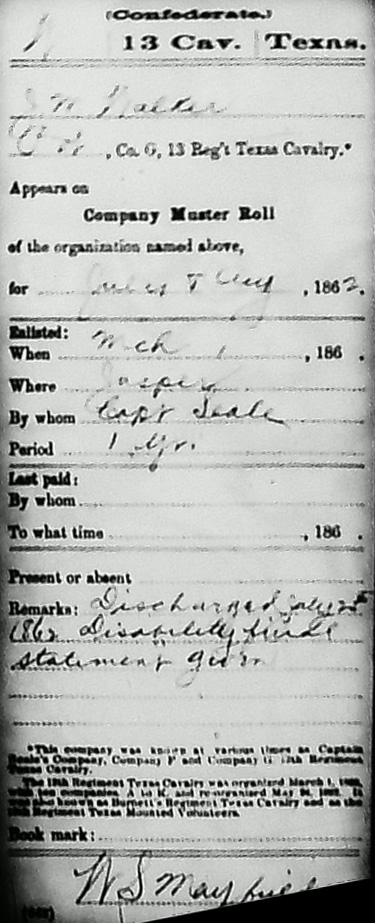 (Confederate.)
13 Cav. Texas.
Walker
, Co. G, 13 Reg't Texas Cavalry.*
Appears on
Company Muster Roll
of the organization named above,
for , 1862.
Enlisted:
When Mch , 186 .
Where Jasper
By whom Capt Seale
Period 1 Yr.
Last paid:
By whom
To what time , 186 .
Present or absent
Remarks: Discharged July 25th
1862 Disability final
statement given
*This company was known at various times as Captain
Seale's Company, Company F and Company G 13th Regiment
Texas Cavalry.
The 13th Regiment Texas Cavalry was organized March 1, 1862,
with ten companies, A to K, and re-organized May 24, 1862. It
was also known as Burnett's Regiment Texas Cavalry and as the
Regiment Texas Mounted Volunteers.
Book mark:
W S Mayfield